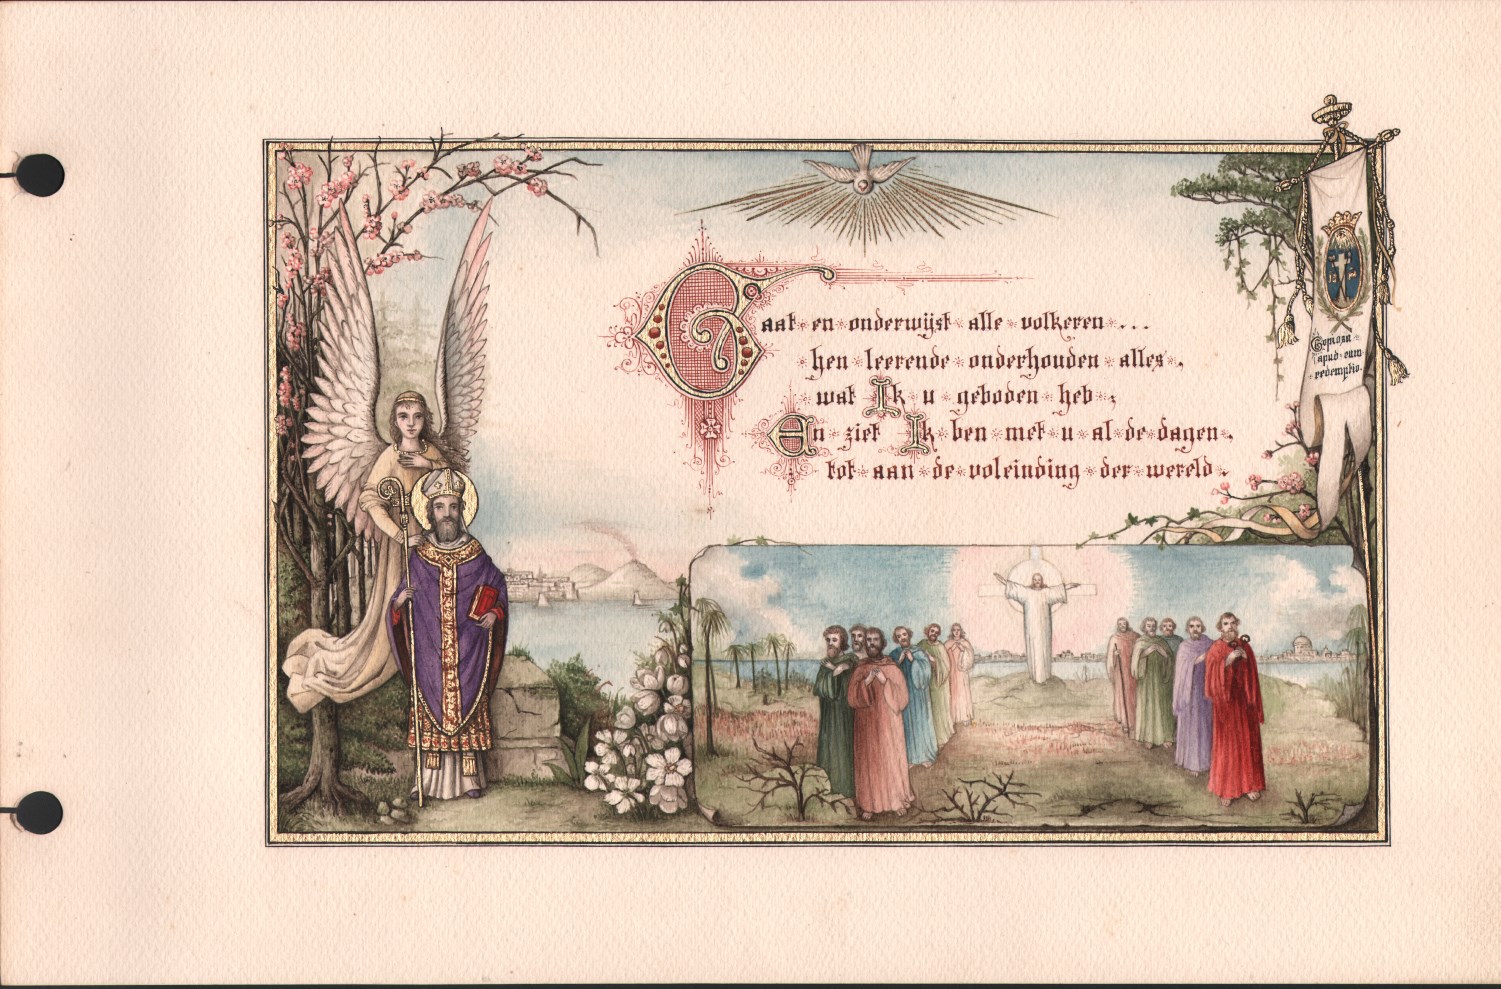 Gaat en onderwijst alle volkeren...
hen leerende onderhouden alles,
wat Ik u geboden heb;
En ziet Ik ben met u al de dagen,
tot aan de voleinding der wereld.
Copiosa
apud eum
redemptio.